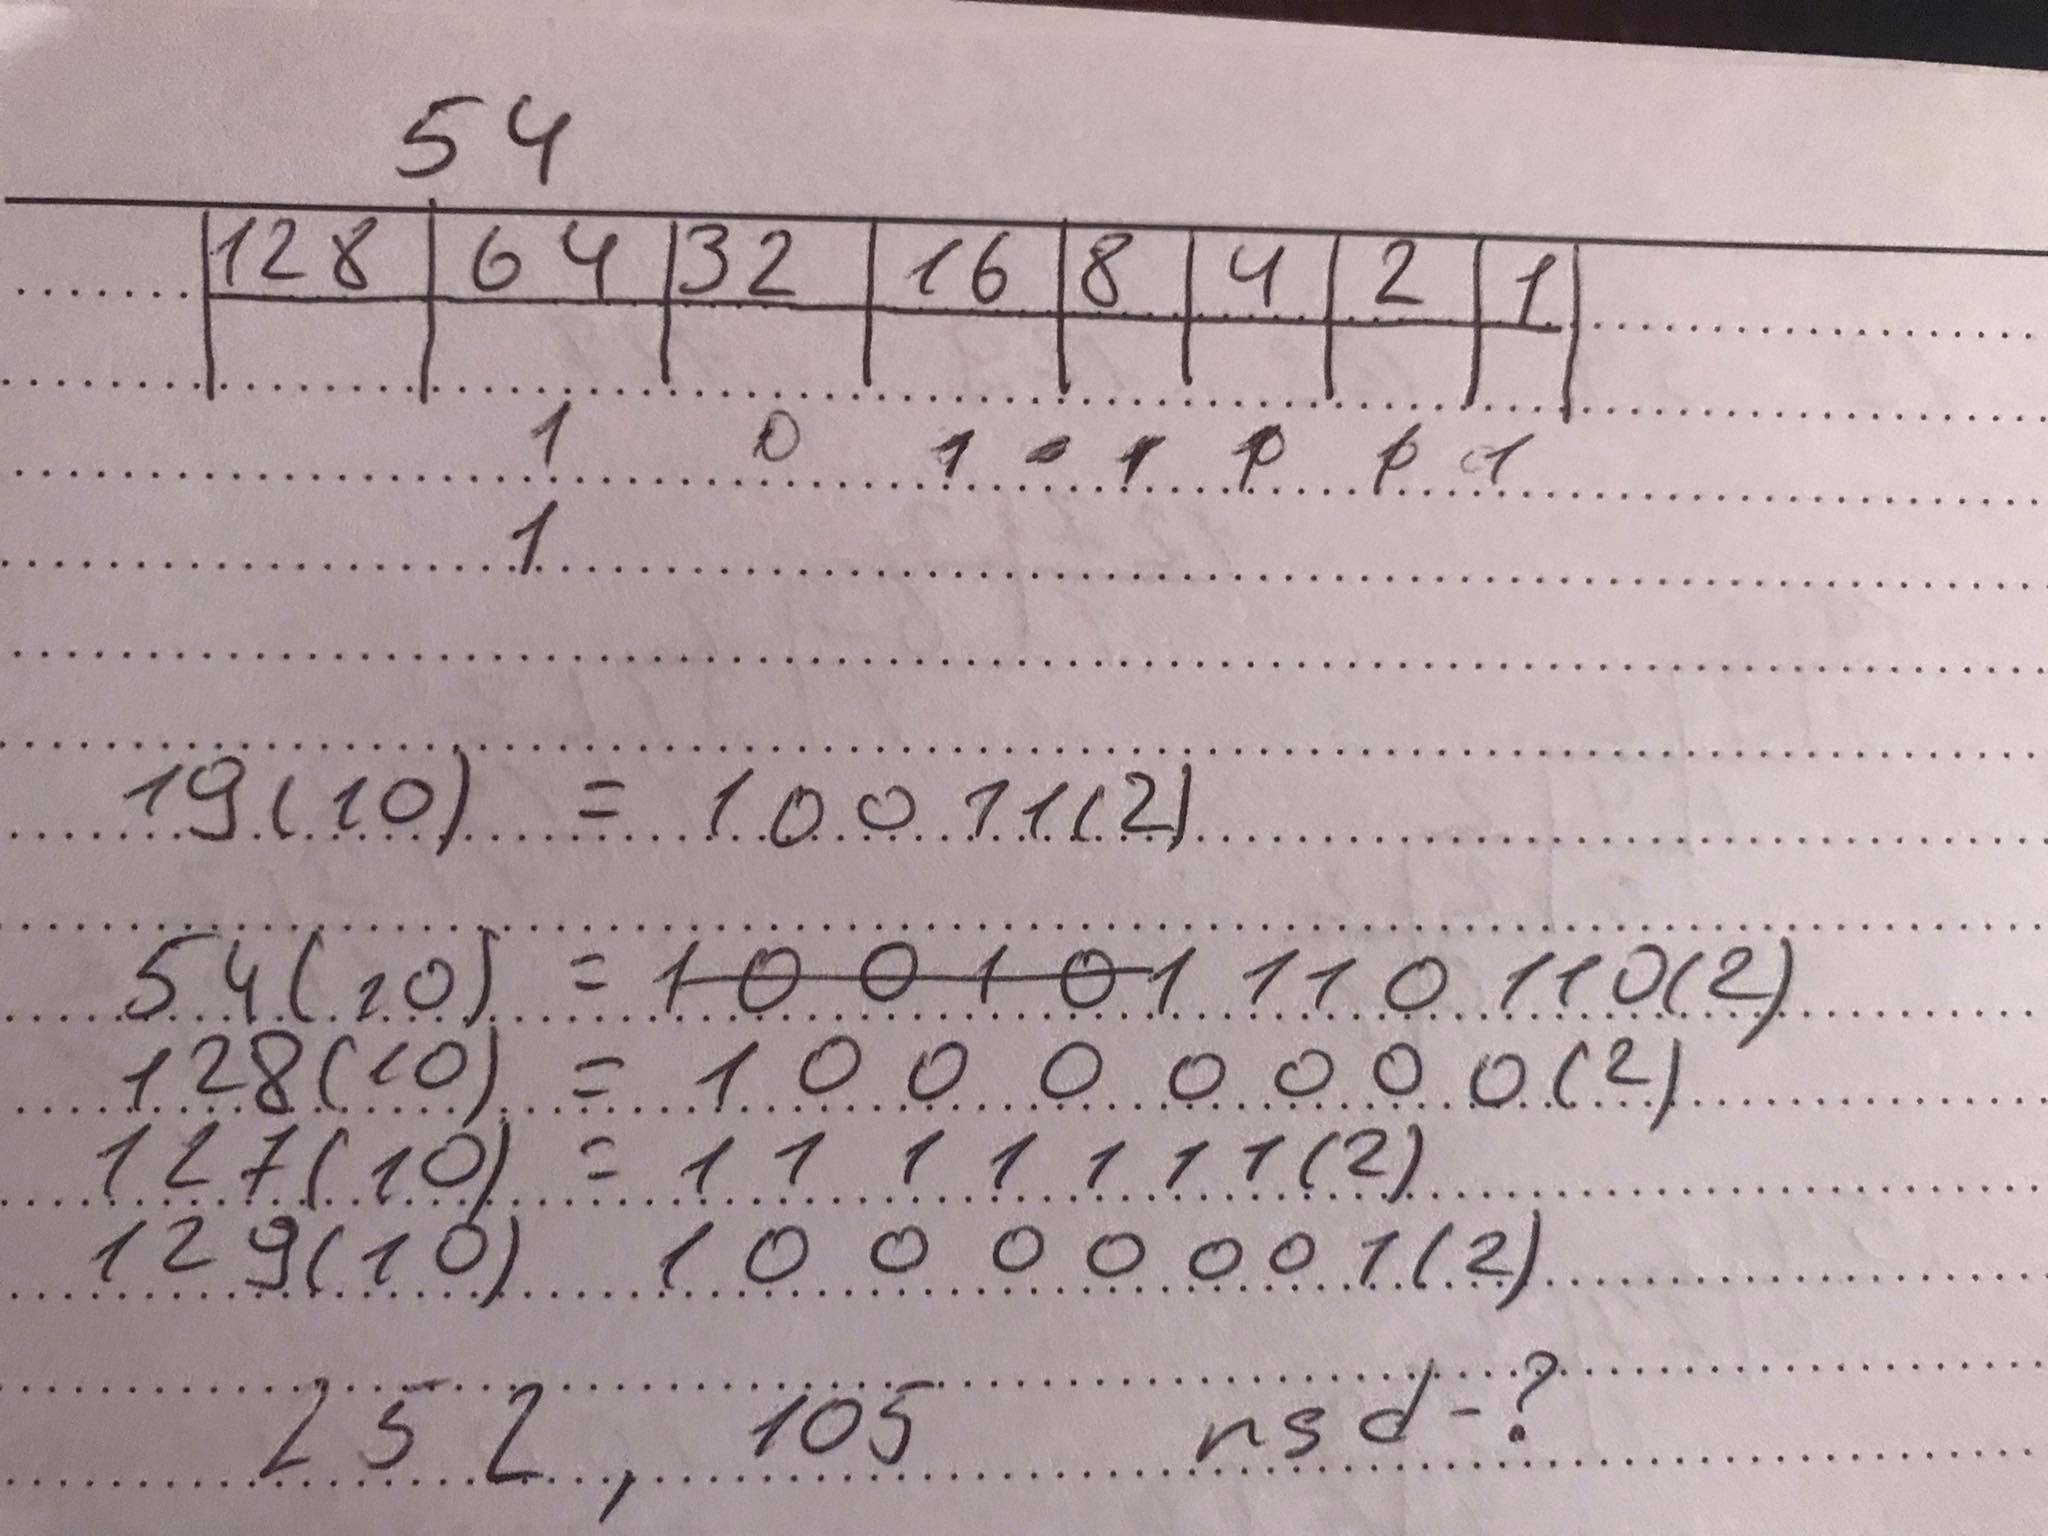 54
128 64 32 16 8 4 2 1
1 0 1 1 1
1
19(10) = 10011(2)
54(10) = 100101 110110(2)
128(10) = 10000000(2)
127(10) = 1111111(2)
129(10) 10000001(2)
252, 105 nsd-?